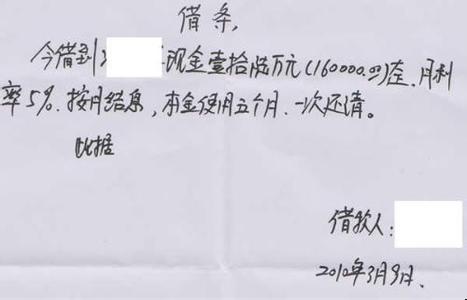 借条,
今借到 现金壹拾陆万元(160000.00)在.月利
率5%.按月结息,本金使用五个月.一次还清。
此据
借款人:
2010年3月9日.